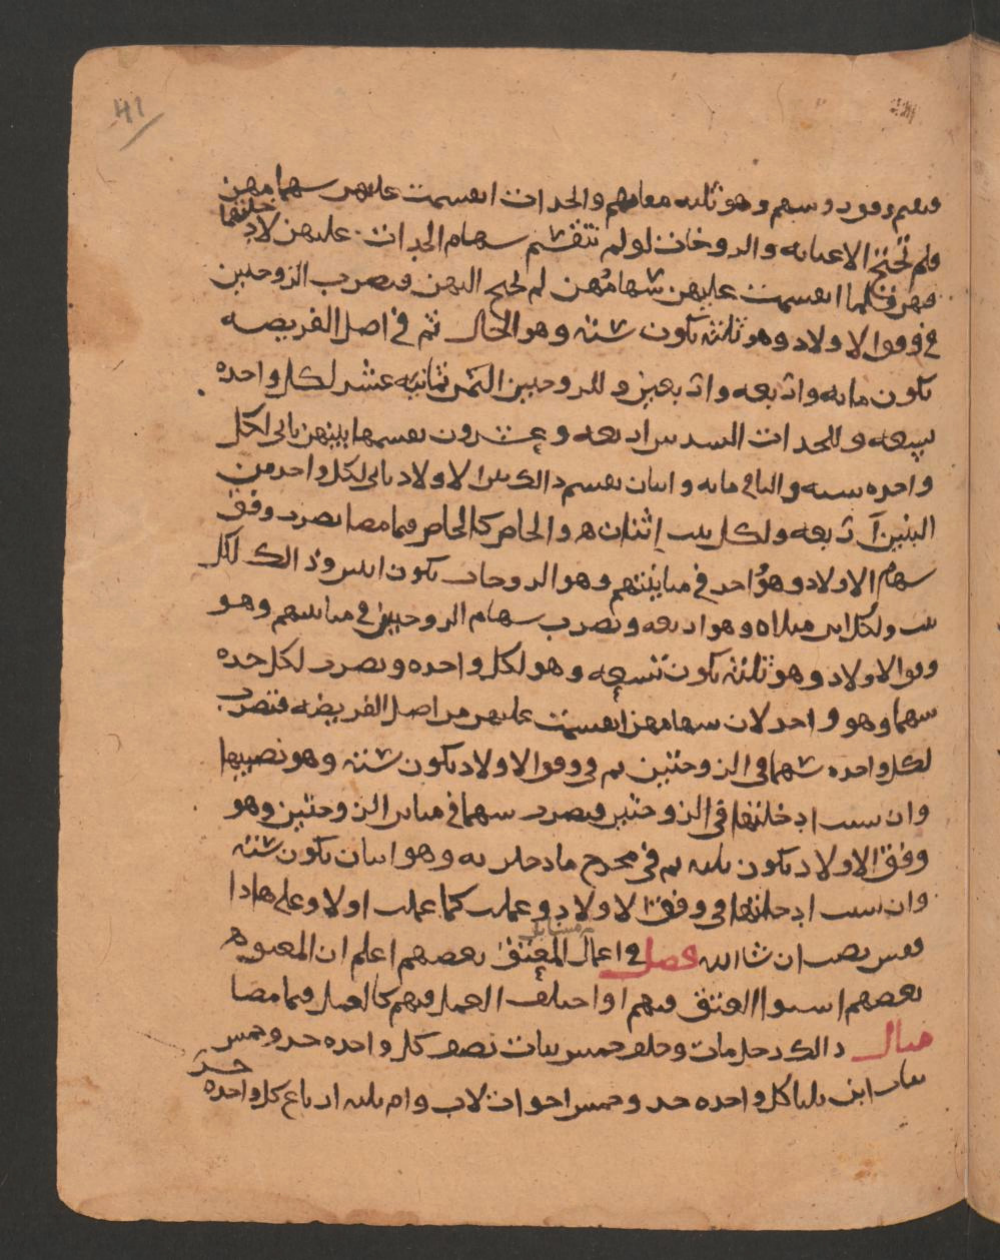 41
فيقيم وفق روسهم وهو ثلثه مقامهم والجدات انقسمت عليهن سهامهن
فلم تحتج الا عيانه والزوجات لو لم تنقسم سهام الجدات عليهن لادخلتها
فيهن فلما انقسمت عليهن سهامهن لم تحتج اليهن فيصرب الزوجتين
في وفق الاولاد وهو ثلثه يكون سته وهو الحال ثم في اصل الفريضه
يكون مايه واربعه واربعين وللزوجتين الثمن ثمانيه عشر لكل واحده
تسعه وللجدات السدس اربعه وعشرون نقسمها بينهن ياتي لكل
واحده سته والباقي مايه واثنان نقسم ذالك بين الاولاد ياتي لكل واحد من
البنين اربعه ولكل بنت اثنان والخاص كالخاص فيما مضا نصرب وفق
سهام الاولاد وهو واحد في مباينتهم وهو الزوجات يكون اثنين وذالك لكل
بنت ولكل ابن مثلاه وهو اربعه ونصرب سهام الزوجتين في مباينهم وهو
وفق الاولاد وهو ثلثه يكون تسعه وهو لكل واحده ونصرب لكل جده
سهما وهو واحد لان سهامهن انقسمت عليهن من اصل الفريضه فنصرب
لكل واحده سهما في الزوجتين ثم في وفق الاولاد يكون سته وهو نصيبها
وان شيت ادخلتها في الزوجتين فيصرب سهما في مباين الزوجتين وهو
وفق الاولاد يكون ثلثه ثم في مخرج ما دخلت به وهو اثنان يكون سته
وان شيت ادخلتها في وفق الاولاد وعملت كما عملت اولا وعلى هاذا
فقس تصب ان شا الله فصل في اعمال المعتق بعضهم اعلم ان المعتوق
بعضهم استوا العتق فيهم او اختلف العمل فيهم كالعمل فيما مضا
مثال ذالك رجل مات وخلف خمس بنات نصف كل واحده حر وخمس
بنات ابن ثلثا كل واحده حر وخمس اخوات لاب وام ثلثه ارباع كل واحده حر